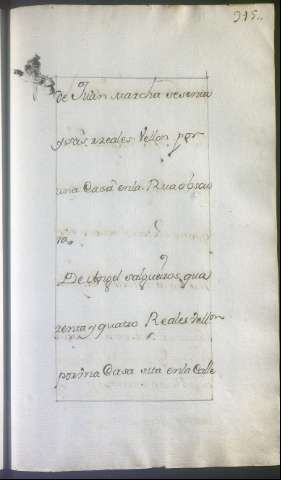 315..
de Juan Marcha sesenta
y seis rreales Vellon por
una Casa en la Rua obscu
ra.
De Angel salgueiros qua
renta y quatro Reales Vellon
por vna Casa sita en la Calle